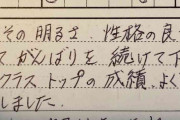 その明るさ、性格の良
てがんばりを続けて下
クラストップの成績、よく
しました.